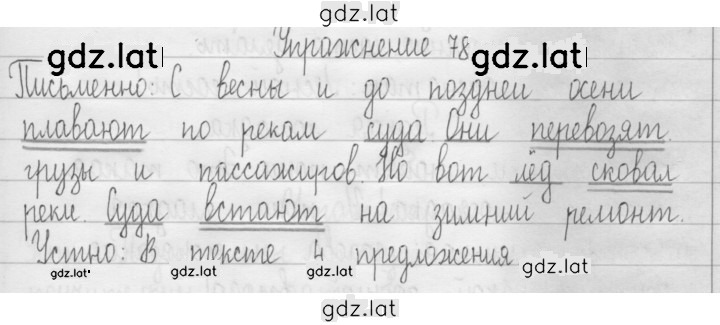 gdz.lat
Упражнение 78
gdz.lat gdz.lat
Письменно: С весны и до поздней осени
плавают по рекам суда. Они перевозят
грузы и пассажиров. Но вот лёд сковал
реки. Суда встают на зимний ремонт.
Устно: В тексте 4 предложения
gdz.lat gdz.lat gdz.lat gdz.lat
gdz.lat